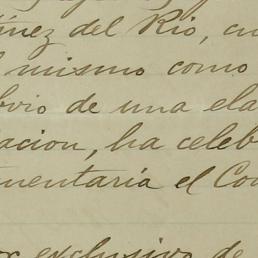 ínez del Rio, cu
mismo como
bvio de una ela
acion, ha celeb
mentaría el Con
or exclusivo de